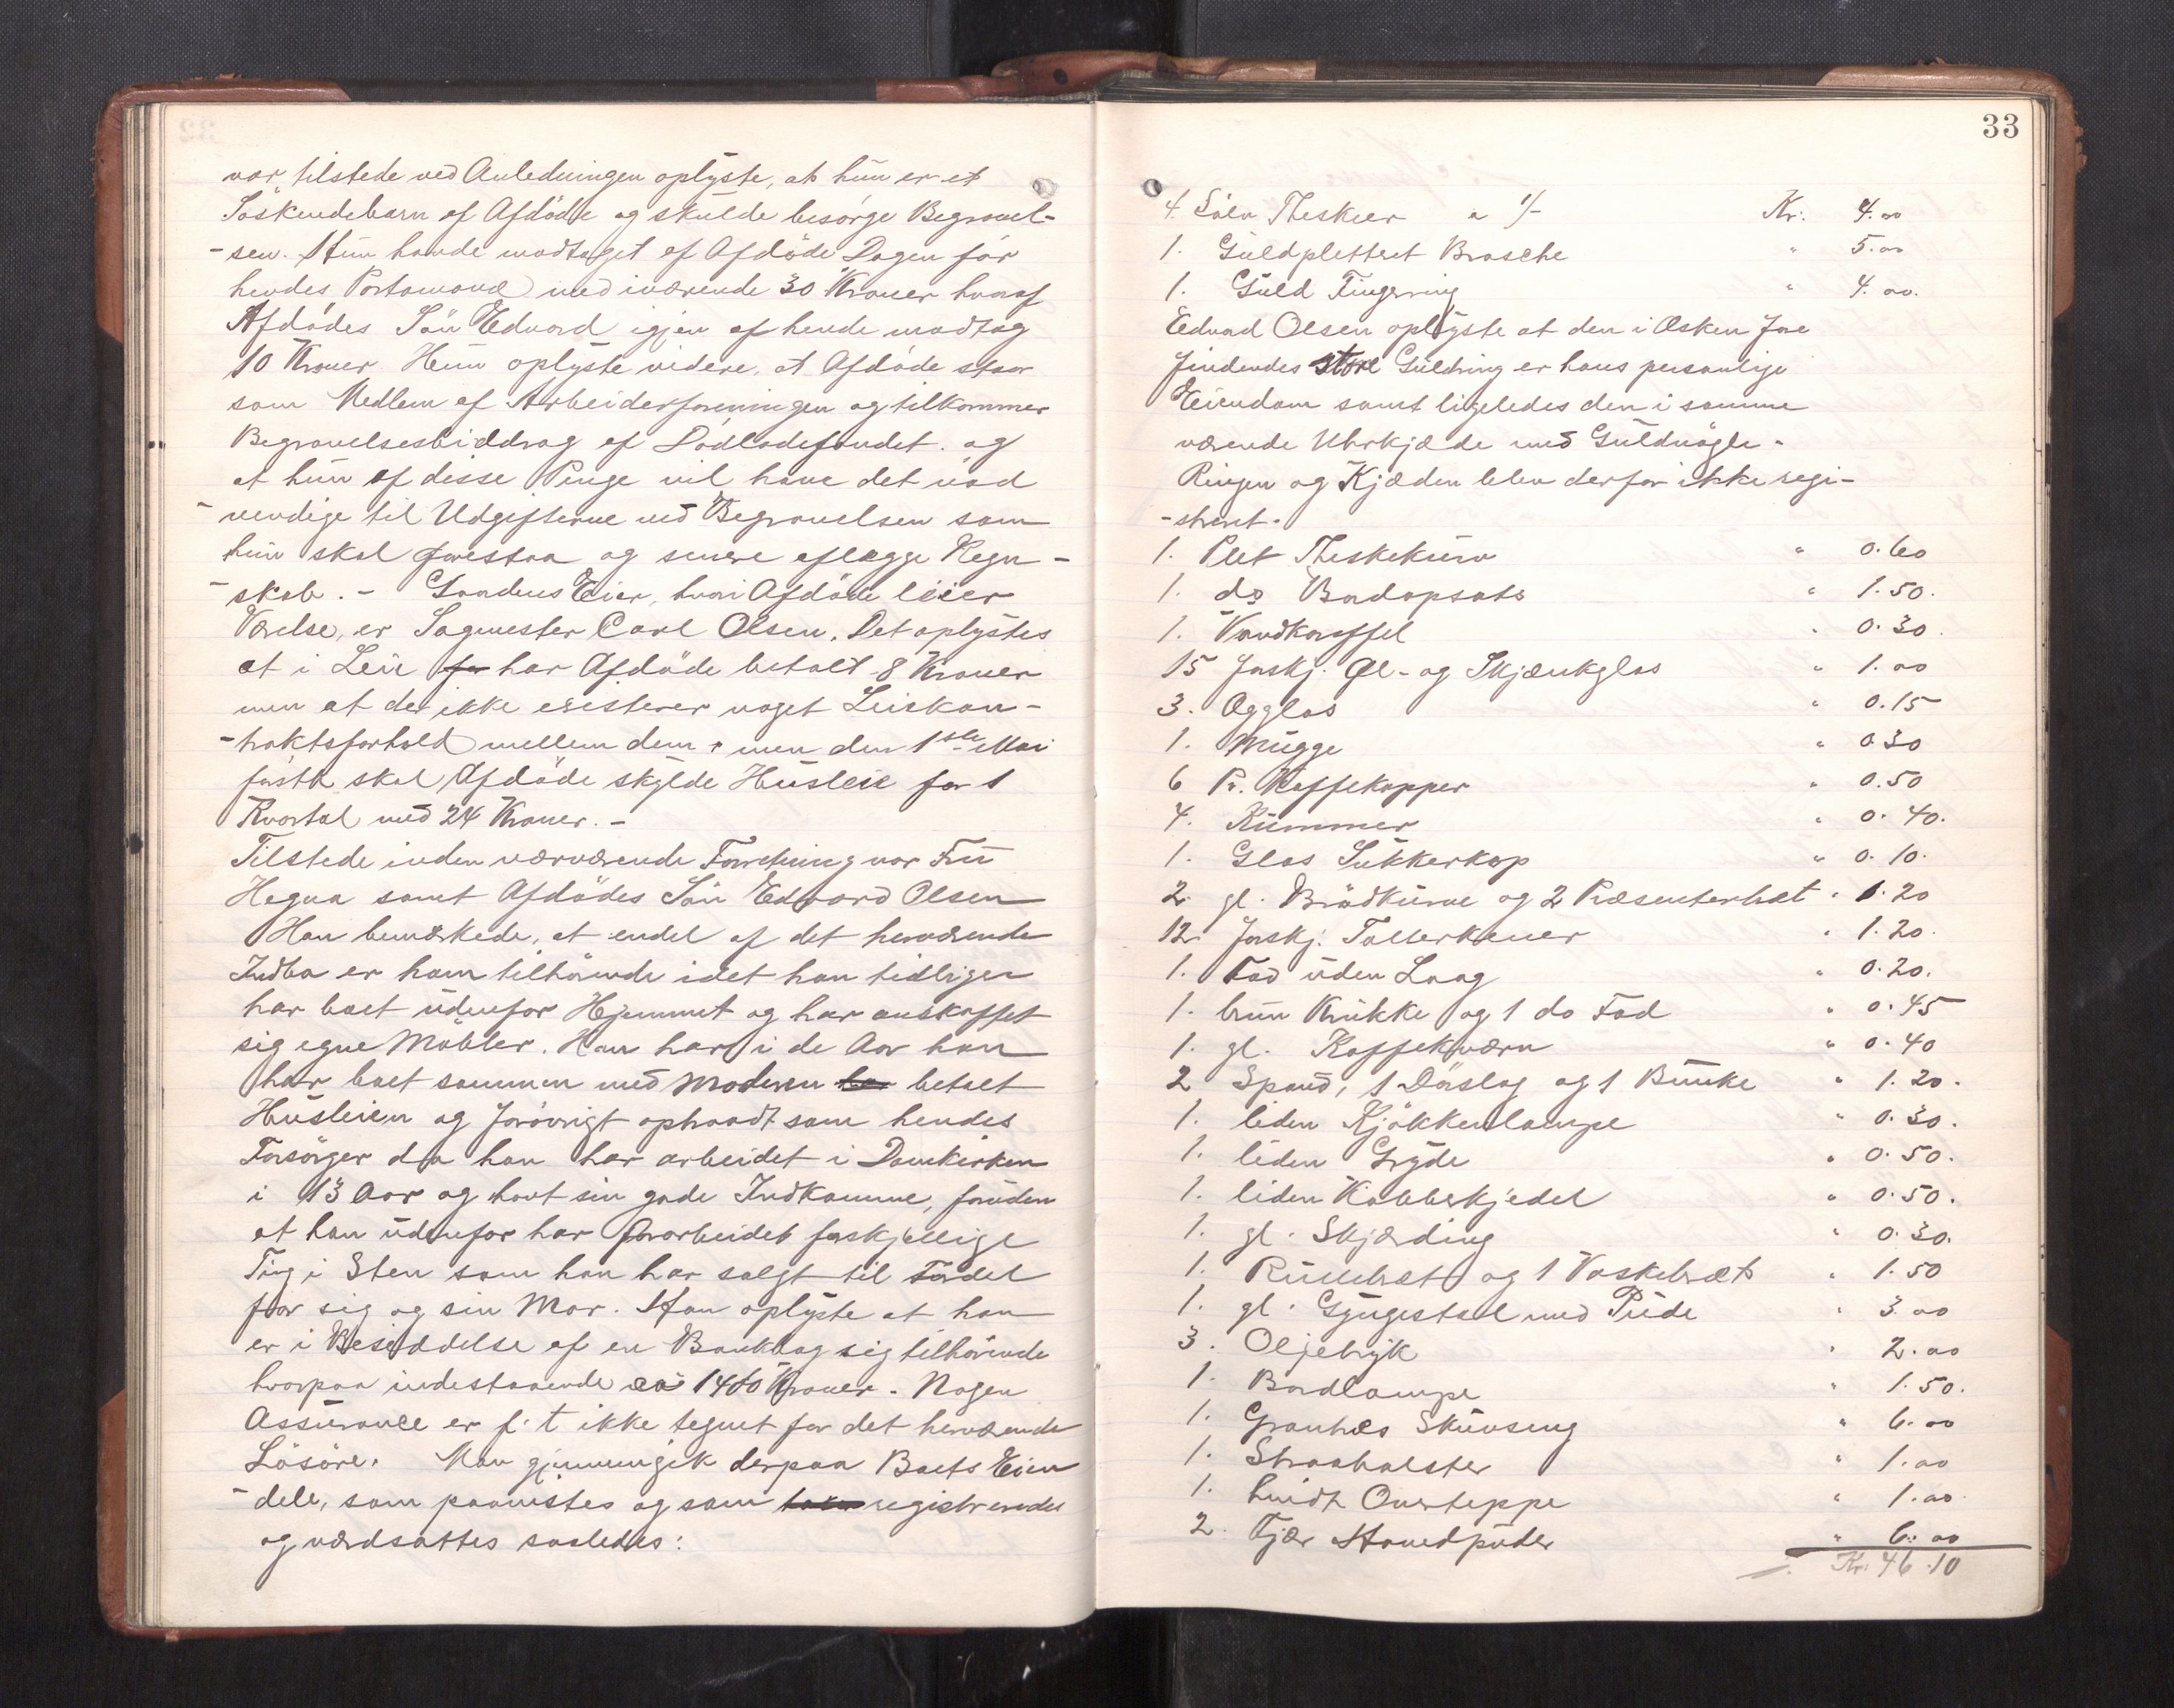 var tilstede ved Anledningen oplyste, at hun er et
Søskendebarn af Afdøde og skulde besørge Begravel-
-sen. Hun havde modtaget af Afdøde Dagen før
hendes Portemonæ med iværende 30 Kroner hvoraf
Afdødes Søn Edvard igjen af hende modtog
10 Kroner. Hun oplyste videre, at Afdøde staar
som Medlem af Arbeiderforeningen og tilkommer
Begravelsesbiddrag af Dødladefondet. og
at hun af disse Penge vil have det nød
-vendige til Udgifterne ved Begravelsen som
hun skal forestaa og senere aflægge Regn-
-skab. - Gaardens Eier, hvori Afdøde leier
Værelse, er Sagmester Carl Olsen. Det oplystes
at i Leie for har Afdøde betalt 8 Kroner
men at der ikke existerer noget Leiekon-
-traktsforhold mellem dem, men den 1ste Mai
førsth. skal Afdøde skylde Husleie for 1
Kvartal med 24 Kroner. -
Tilstede under nærværende Forretning var Fru
Hegna samt Afdødes Søn Edvard Olsen
Han bemærkede, at endel af det herværende
Indbo er ham tilhørende idet han tidligere
har boet udenfor Hjemmet og har anskaffet
sig egne Møbler. Han har i de Aar han
har boet sammen med Moderen betalt
Husleien og forøvrigt optraadt som hendes
Forsørger da han har arbeidet i Domkirken
i 13 Aar og havt sin gode Indkomme, foruden
at han udenfor har forarbeidet forskjellige
Ting i Sten som han har solgt til Fordel
for sig og sin Mor. Han oplyste at han
er i Besiddelse af en Bankbog sig tilhørende
hvorpaa indestaaende ca 1400 Kroner. Nogen
Assurance er f. t. ikke tegnet for det herværende
Løsøre. Man gjennemgik derpaa Boets Eien
-dele, som paavistes og som registreredes
og værdsattes saaledes:
33
4. Sølv Theskeer a 1/- Kr. 4.00
1. Guldplettert Brosche " 5.00
1. Guld Fingerring " 4.00.
Edvard Olsen oplyste at den i Æsken fore
findendes store Guldring er hans personlige
Eiendom samt ligeledes den i samme
værende Uhrkjæde med Guldnøgle.
Ringen og Kjæden blev derfor ikke regi-
-streret.
1. Plet Theskekurv " 0.60
1. do Bordopsats " 1.50.
1. Vandkaraffel " 0.30.
15 forskj. Øl- og Skjænkglas " 1.00
3. Ægglas " 0.15
1. Mugge " 0.30
6 Pr. Kaffekopper " 0.50
4. Kummer " 0.40.
1. Glas Sukkerkop " 0.10.
2. gl. Brødkurve og 2 Præsenterbræt " 1.20
12 forskj. Tallerkener " 1.20.
1. Fad uden Laag " 0.20.
1. brun Krukke og 1 do Fad " 0.45
1. gl. Kaffekværn " 0.40
2 Spand, 1 Dørslag og 1 Bunke " 1.20.
1. liden Kjøkkenlampe " 0.30.
1. liden Gryde " 0.50.
1. liden Kobberkjedel " 0.50.
1. gl. Skjærding " 0.30.
1. Rullebræt og 1 Vaskebræt " 1.50
1. gl. Gyngestol med Pude " 3.00
3. Oljetryk " 2.00
1. Bordlampe " 1.50.
1. Grantræs Skuvseng " 6.00
1. Straabolster " 1.00
1. hvidt Overteppe " 1.00.
2. Fjær Hovedpuder " 6.00
Kr. 46.10